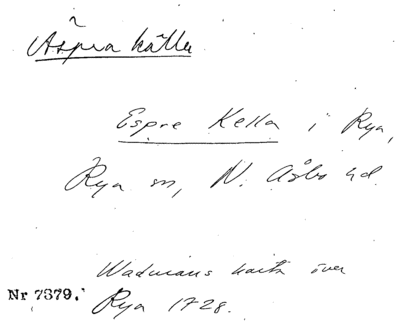 Äspra källa
Espre Kella i Rya,
Rya sn, N. Åsbo hd.
Wadmans karta över
Nr 7379.
Rya 1728.